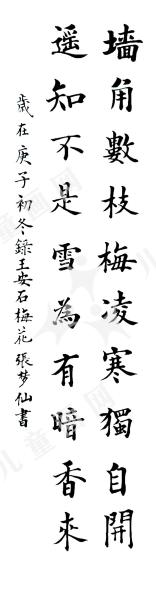 墻角數枝梅凌寒獨自開
遥知不是雪為有暗香來
歲在庚子初冬録王安石梅花張梦仙書
儿童画网